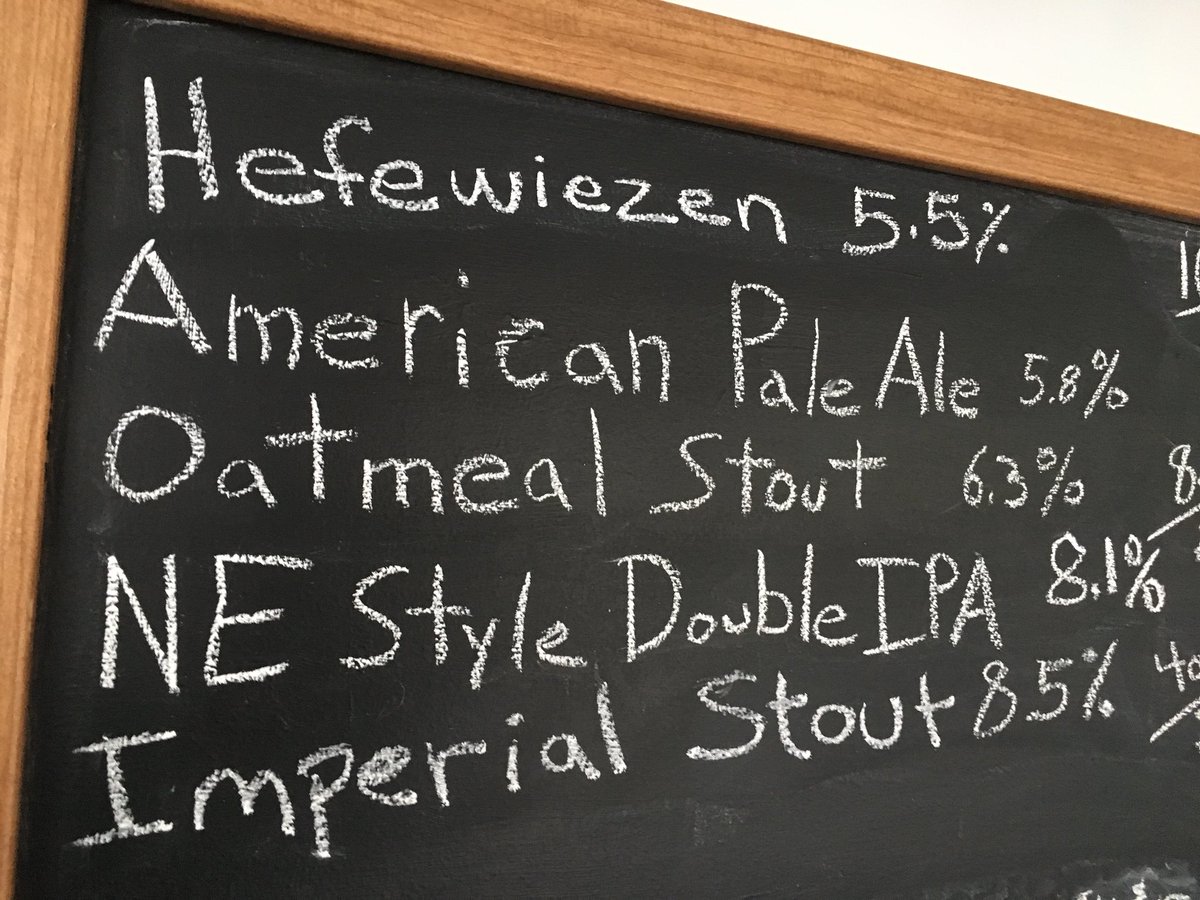 Hefewiezen 5.5%
American Pale Ale 5.8%
Oatmeal Stout 6.3%
NE Style Double IPA 8.1%
Imperial Stout 8.5%